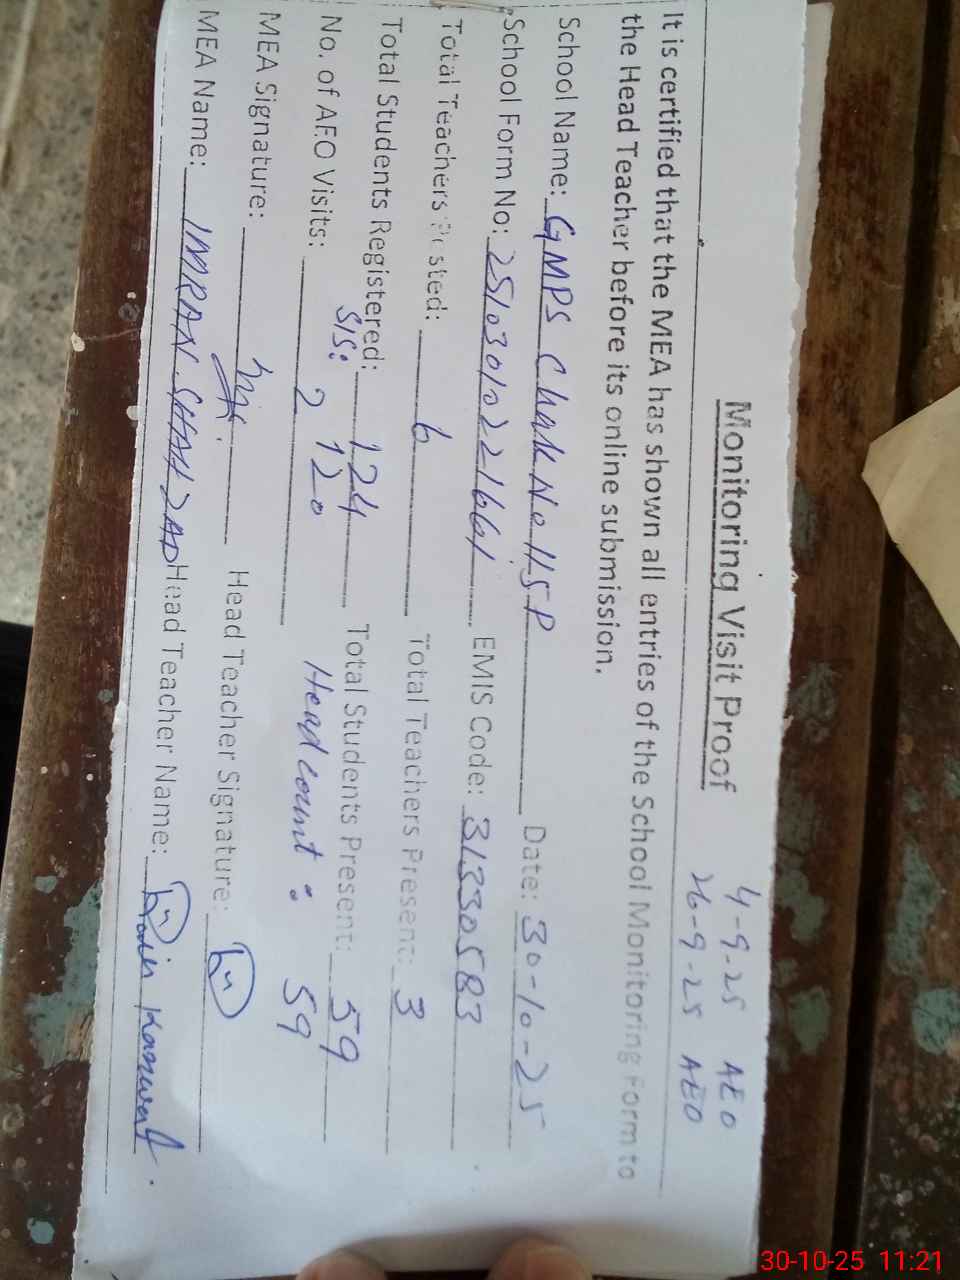 Monitoring Visit Proof
4-9-25 AEO
26-9-25 AEO
It is certified that the MEA has shown all entries of the School Monitoring Form to
the Head Teacher before its online submission.
School Name: GMPS Chak No 115P Date: 30-10-25
School Form No: 25103010221661 EMIS Code: 31330583
Total Teachers Posted: 6 Total Teachers Present: 3
Total Students Registered: 124 Total Students Present: 59
SIS: 120 Head count: 59
No. of AEO Visits: 2
MEA Signature: Head Teacher Signature:
MEA Name: IMRAN SHAHZAD Head Teacher Name:
30-10-25 11:21